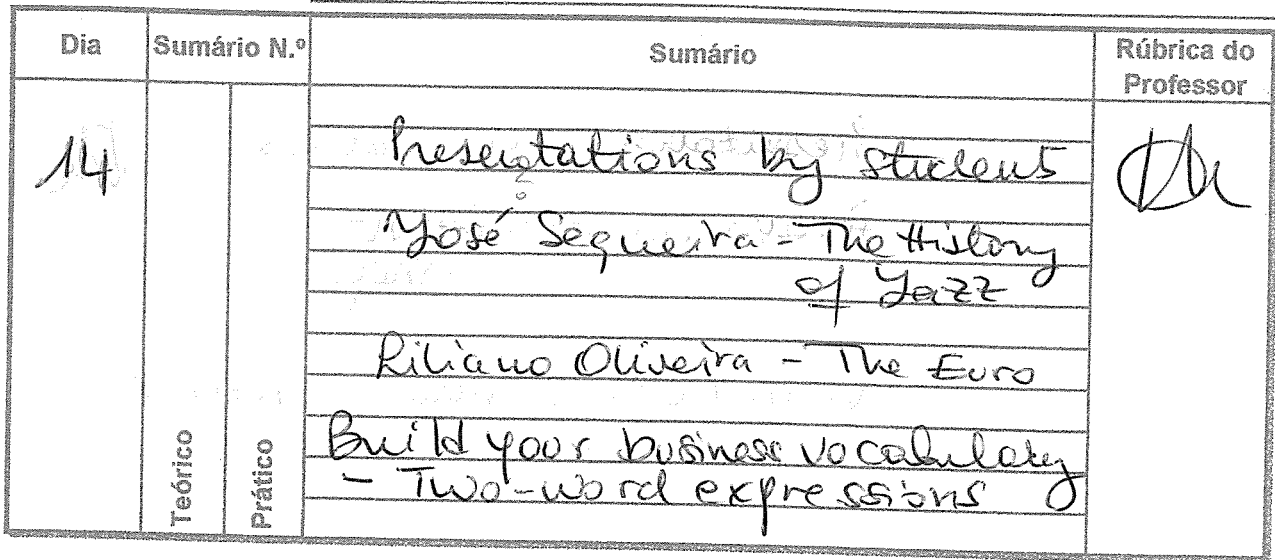 Dia Sumário N.º Sumário Rúbrica do Professor
14
Presentations by student
José Sequeira - The History
of Jazz
Liliano Oliveira - The Euro
Build your business vocabulary
- Two-word expressions
Teórico
Prático